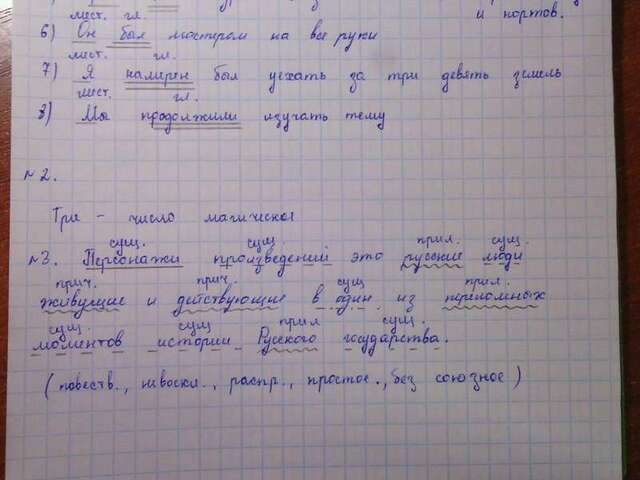 мест. гл. и портов.
6) Он был мастером на все руки
мест. гл.
7) Я намерен был уехать за три девять земель
мест. гл.
8) Мы продолжили изучать тему
№2.
Три - число магическое
сущ. сущ. прил. сущ.
№3. Персонажи произведений это русские люди
прич. прич. сущ прил.
живущие и действующие в один из переломных
сущ. сущ прил сущ.
моментов истории Русского государства.
(повеств., невоскл., распр., простое., без союзное)